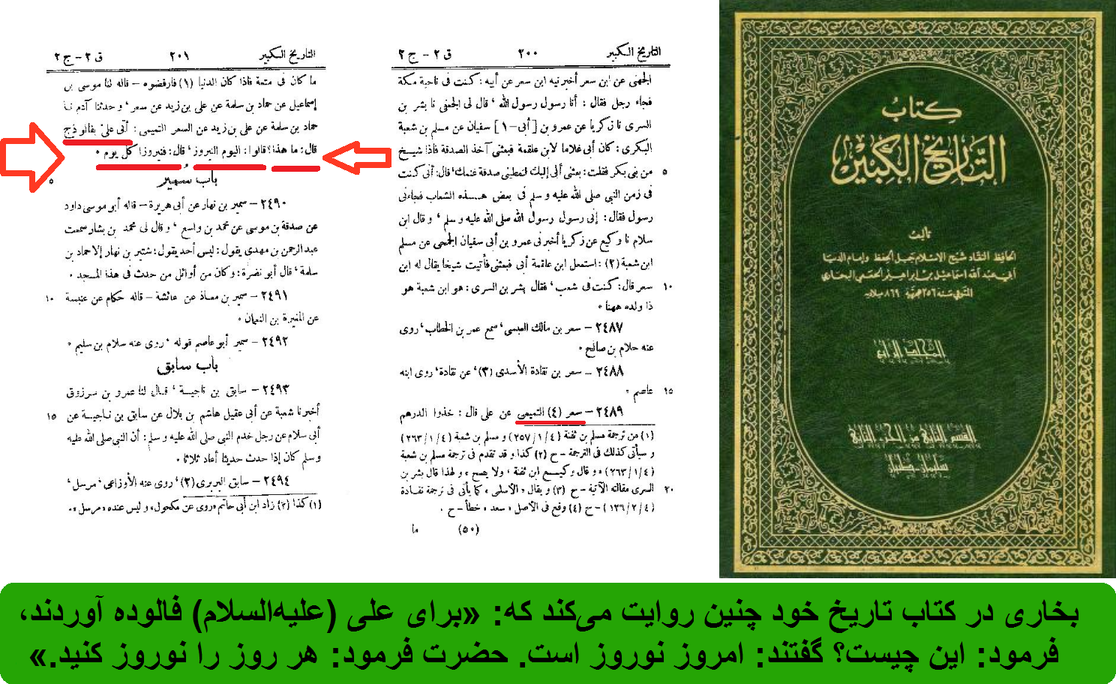 التاريخ الكبير ٢٠١ ق ٢ - ج ٢
ما كان فى متمة فاذا كان الدنيا (١) فارفضوه - قاله لنا موسى بن
إسماعيل عن حماد بن سلمة عن على بن زيد عن سعر، وحدثنا آدم نا
حماد بن سلمة عن على بن زيد عن السعر التميمى: أتى على بفالوذج
قال: ما هذا؟ قالوا: اليوم النيروز، قال: فنيروزا كل يوم •
باب سُمير ٥
٢٤٩٠ - سمير بن نهار عن أبى هريرة - قاله أبو موسى داود
عن صدقة بن موسى عن محمد بن واسع، وقال لى محمد بن بشار سمعت
عبد الرحمن بن مهدى يقول: ليس أحد يقول: شتير بن نهار إلا حماد بن
سلمة، قال أبو نضرة: وكان من أوائل من حدث فى هذا المسجد •
٢٤٩١ - سمير بن معاذ عن عائشة - قاله حكام عن عنبسة ١٠
عن المغيرة بن النعمان •
٢٤٩٢ - سمير أبو عاصم قوله، روى عنه سلام بن سليم •
باب سابق
٢٤٩٣ - سابق بن ناجية، قال لنا عمرو بن مرزوق
أخبرنا شعبة عن أبى عقيل هاشم بن بلال عن سابق بن ناجية عن ١٥
أبى سلام عن رجل خدم النبى صلى الله عليه وسلم: أن النبى صلى الله عليه
وسلم كان إذا حدث حديثا أعاد ثلاثا •
٢٤٩٤ - سابق البربرى (٢)، روى عنه الأوزاعى، مرسل •
(١) كذا (٢) زاد ابن أبى حاتم «روى عن مكحول، وليس عنده «مرسل» •
التاريخ الكبير ٢٠٠ ق ٢ - ج ٢
الجهنى عن ابن سعر أخبرنيه ابن سعر عن أبيه: كنت فى ناحية مكة
فجاء رجل فقال: أنا رسول رسول الله، قال لى الجعفى نا بشر بن
السرى نا زكريا عن عمرو بن [أبى - ١] سفيان عن مسلم بن شعبة
البكرى: كان أبى غلاما لابن علقمة فبعثنى آخذ الصدقة فاذا شيخ
من بنى بكر فقلت: بعثنى أبى إليك لتعطينى صدقة غنمك، قال: أنى كنت ٥
فى زمن النبى صلى الله عليه وسلم فى بعض هذه الشعاب فجاءنى
رسول فقال: إنى رسول رسول الله صلى الله عليه وسلم، وقال ابن
سلام نا وكيع عن زكريا أخبرنى عمرو بن أبى سفيان الجمحى عن مسلم
ابن شعبة (٢): استعمل ابن علقمة أبى فبعثنى فأتيت شيخا يقال له ابن
سعر قال: كنت فى شعب، فقال بشر بن السرى: هو ابن شعبة هو ١٠
ذا ولده ههنا •
٢٤٨٧ - سعر بن مالك العبسى، سمع عمر بن الخطاب، روى
عنه حلام بن صالح •
٢٤٨٨ - سعر بن نقادة الأسدى (٣)، عن نقادة، روى ابنه
عاصم • ١٥
٢٤٨٩ - سعر (٤) التميمى عن على قال: خذوا الدرهم
(١) من ترجمة مسلم بن ثفنة (٤/١/٢٥٧) و مسلم بن شعبة (٤/١/٢٦٣)
و سيأتى كذلك فى الترجمة - ح (٢) كذا و قد تقدم فى ترجمة مسلم بن شعبة
(٤/١/٢٦٣) «و قال وكيع ابن ثفنة، ولا يصح» ولهذا قال بشر بن
السرى مقالته الآتية - ح (٣) و يقال «الأسلمى» كما يأتى فى ترجمة نقادة ٢٠
(٤/٢/١٣٦) - ح (٤) وقع فى الأصل «سعد» خطأ - ح •
(٥٠) ما
كتاب
التاريخ الكبير
تأليف
الحافظ النقاد شيخ الإسلام جبل الحفظ وإمام الدنيا
أبي عبد الله إسماعيل بن إبراهيم الجعفي البخاري
المتوفى سنة ٢٥٦ هجرية ٨٦٩ ميلادية
المجلد الرابع
القسم الثاني من الجزء الثاني
سليمان - طيان
بخاری در کتاب تاریخ خود چنین روایت می‌کند که: «برای علی (علیه‌السلام) فالوده آوردند،
فرمود: این چیست؟ گفتند: امروز نوروز است. حضرت فرمود: هر روز را نوروز کنید.»